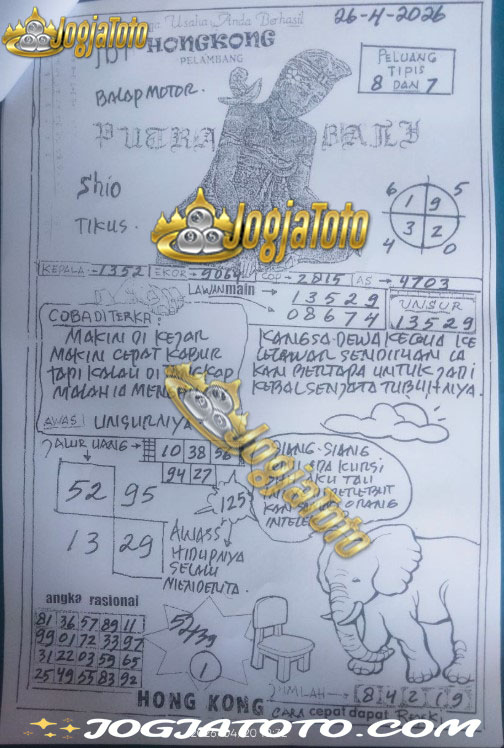 Usaha Anda Berhasil
26-4-2026
JogjaToto
HONGKONG
PELAMBANG
BALAP MOTOR.
PELUANG
TIPIS
8 DAN 7
PUTRA BALI
Shio
TIKUS.
6 5
1 9
3 2
4 0
JogjaToto
KEPALA → 1352 EKOR → 9064 COP → 2815 AS → 4703
LAWAN main
13529
08674
UNSUR
13529
COBA DITERKA:
MAKIN DI KEJAR
MAKIN CEPAT KABUR
TAPI KALAU DI
MALAH IA
AWAS UNSURNYA
KANGSA-DEWA KEBAL KE
SENDIRIAN IA
KAN BERTAPA UNTUK JADI
KEBAL SENJATA TUBUHNYA.
JogjaToto
JALUR UANG →
10 38 56
94 27
52 95
13 29
125
SIANG-SIANG
ADA KURSI
TAU
ORANG
AWASS
HIDUPNYA
SELALU
MENDERITA.
angka rasional
81 36 57 89 11
99 01 72 33 97
31 22 03 59 65
25 49 55 83 92
1
JUMLAH → 8 4 2 7 9
HONG KONG CARA cepat dapat
JOGJATOTO.COM